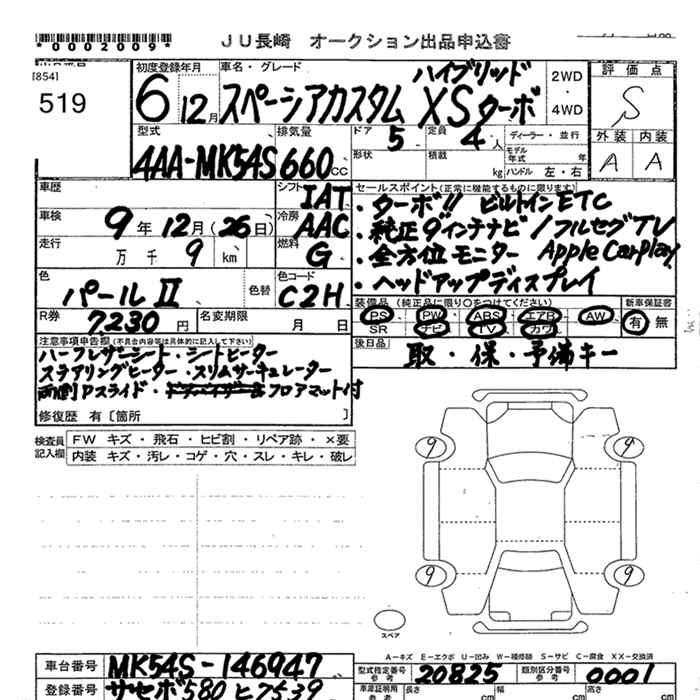 *0002009*
JU長崎 オークション出品申込書
[854]
519
初度登録年月
6 12月
車名・グレード
ハイブリッド
スペーシアカスタム XSターボ
2WD
・
4WD
評価点
S
外装 内装
A A
型式
4AA-MK54S
排気量
660cc
ドア
5
定員
4人
形状
積載
kg
ディーラー・並行
モデル年式 年
ハンドル 左・右
車歴
シフト
IAT
車検
9年12月(26日)
冷房
AAC
走行
万千9km
燃料
G
色
パールⅡ
色替
色コード
C2H
R券
7230円
名変期限
月 日
セールスポイント(正常に機能するものに限ります)
・ターボ!! ビルトインETC
・純正9インチナビ/フルセグTV
・全方位モニター Apple Carplay
・ヘッドアップディスプレイ
装備品(純正品に限り○をつけてください)
PS PW ABS エアB AW
SR ナビ TV カワ
新車保証書
有 無
後日品
取・保・予備キー
注意事項申告欄(不具合内容等は具体的に記入して下さい)
ハーフレザーシート・シートヒーター
ステアリングヒーター・スリムサーキュレーター
両側Pスライド・フロアマット付
修復歴 有〔箇所 〕
検査員記入欄
FW キズ・飛石・ヒビ割・リペア跡・×要
内装 キズ・汚レ・コゲ・穴・スレ・キレ・破レ
9 9
9 9
スペア
A-キズ E-エクボ U-凹み W-補修跡 S-サビ C-腐食 XX-交換済
車台番号
MK54S-146947
登録番号
サセボ580ヒ7539
型式指定番号
参考
20825
類別区分番号
参考
0001
車庫証明用
参考
長さ
cm
幅
cm
高さ
cm